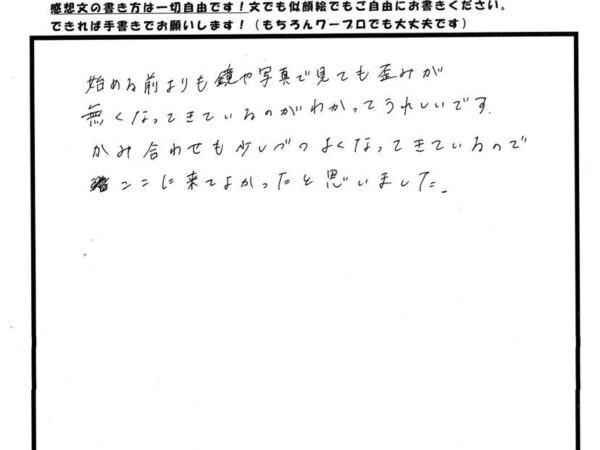 感想文の書き方は一切自由です！文でも似顔絵でもご自由にお書きください。
できれば手書きでお願いします！（もちろんワープロでも大丈夫です）
始める前よりも鏡や写真で見ても歪みが
無くなってきているのがわかってうれしいです.
かみ合わせも少しづつよくなってきているので
ここに来てよかったと思いました.